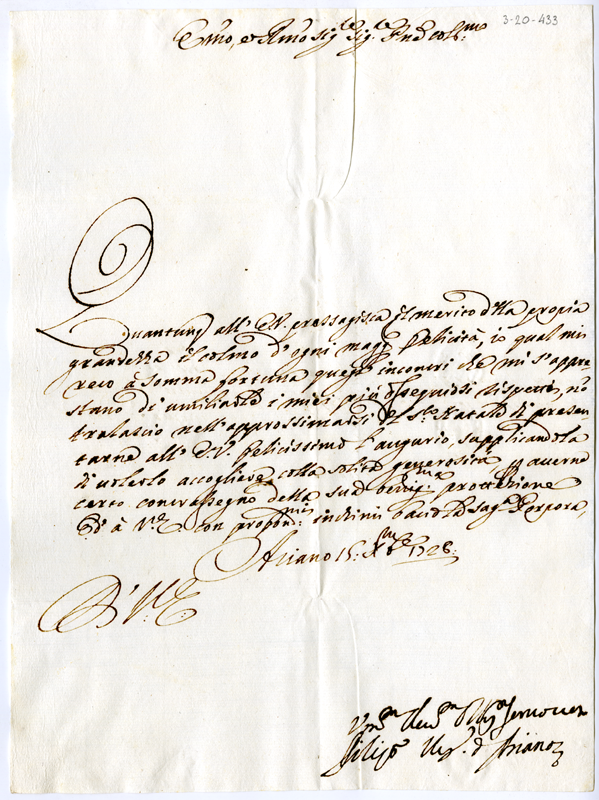 3-20-433
Emo, et Rmo Sig.re Sig.re Pne Col.mo
Quantunq. all' E.V. pressagisca il merito della propia
grandezza il colmo d'ogni magg. felicità, io qual mi
reco à somma fortuna quegl' incontri che mi s'appre=
stano di umiliarle i miei più ossequiosi rispetti, nō
tralascio nell'approssimarsi il S.to Natale di presen
tarne all' E.V. felicissimo l'augurio, supplicandola
di volerlo accogliere colla solita generosità p. averne
certo contrassegno della sua benig.ma prottezione
Ed à V.E. con profon.mi inchini bacio la Sag. Porpora,
Ariano 15. Xbre 1728.
D' V.E.
Um.mo Dev.mo Oblig.mo Servo vero
Filipo Ves.o d'Ariano